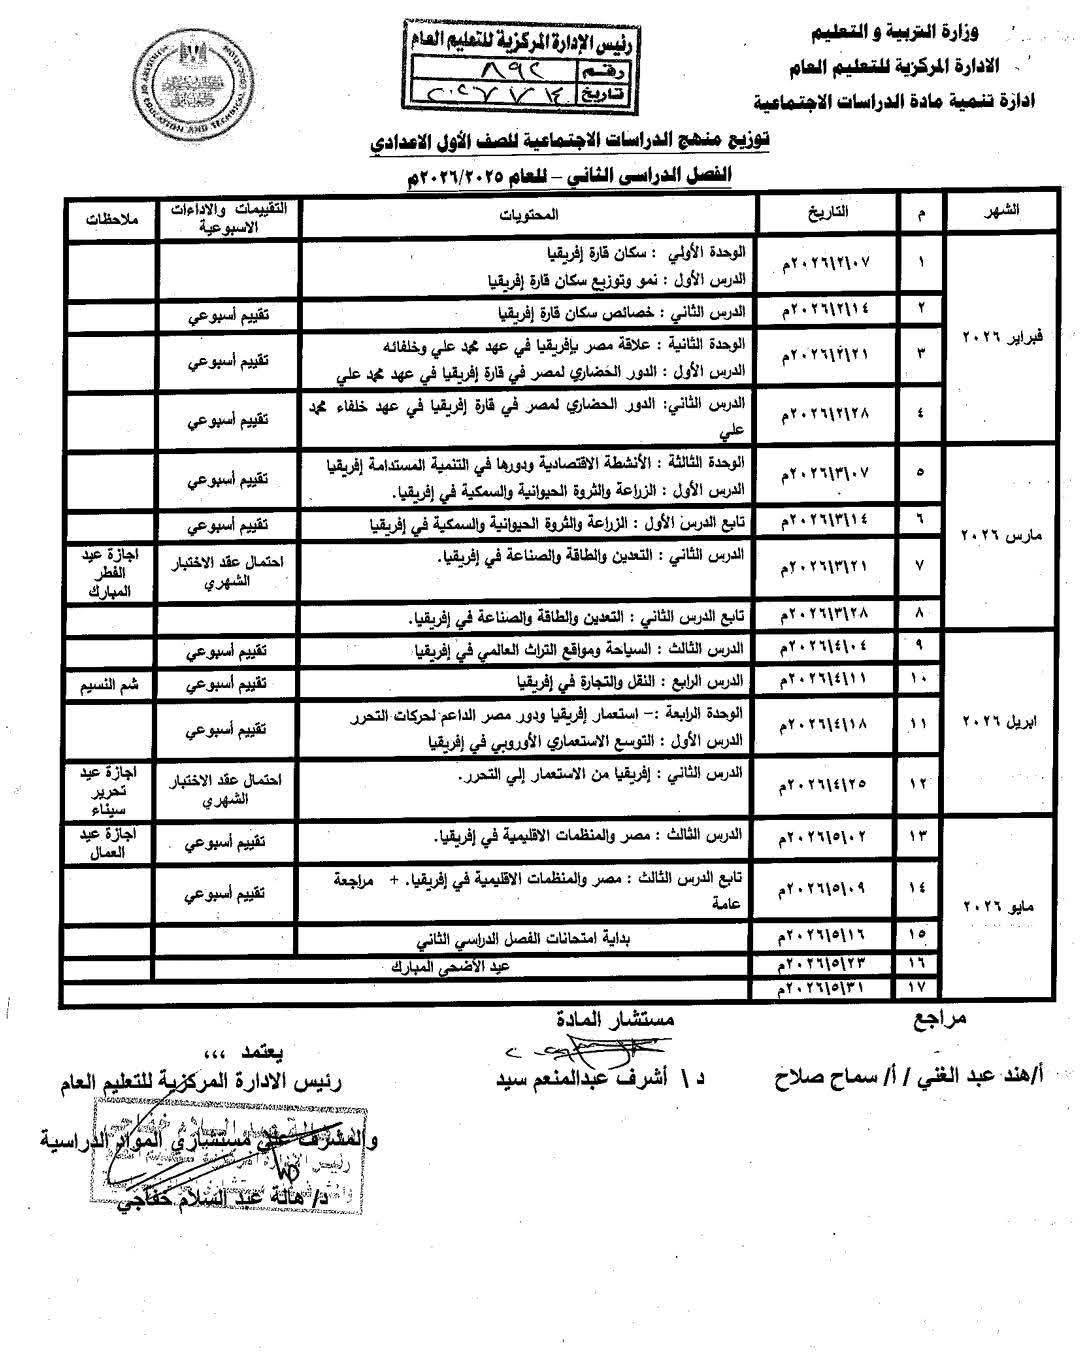 وزارة التربية و التعليم
الادارة المركزية للتعليم العام
ادارة تنمية مادة الدراسات الاجتماعية
رئيس الإدارة المركزية للتعليم العام
رقم ٨٩٢
تاريخ
MINISTRY OF EDUCATION AND TECHNICAL EDUCATION
توزيع منهج الدراسات الاجتماعية للصف الأول الاعدادي
الفصل الدراسى الثاني – للعام ٢٠٢٦/٢٠٢٥م
الشهر م التاريخ المحتويات التقييمات والاداءات الاسبوعية ملاحظات
فبراير ٢٠٢٦
١ ٢٠٢٦/٢/٠٧م الوحدة الأولي : سكان قارة إفريقيا
الدرس الأول : نمو وتوزيع سكان قارة إفريقيا
٢ ٢٠٢٦/٢/١٤م الدرس الثاني : خصائص سكان قارة إفريقيا تقييم أسبوعي
٣ ٢٠٢٦/٢/٢١م الوحدة الثانية : علاقة مصر بإفريقيا في عهد محمد علي وخلفائه تقييم أسبوعي
الدرس الأول : الدور الحضاري لمصر في قارة إفريقيا في عهد محمد علي
٤ ٢٠٢٦/٢/٢٨م الدرس الثاني: الدور الحضاري لمصر في قارة إفريقيا في عهد خلفاء محمد تقييم أسبوعي
علي
مارس ٢٠٢٦
٥ ٢٠٢٦/٣/٠٧م الوحدة الثالثة : الأنشطة الاقتصادية ودورها في التنمية المستدامة إفريقيا تقييم أسبوعي
الدرس الأول : الزراعة والثروة الحيوانية والسمكية في إفريقيا.
٦ ٢٠٢٦/٣/١٤م تابع الدرس الأول : الزراعة والثروة الحيوانية والسمكية في إفريقيا تقييم أسبوعي
٧ ٢٠٢٦/٣/٢١م الدرس الثاني : التعدين والطاقة والصناعة في إفريقيا. احتمال عقد الاختبار الشهري اجازة عيد الفطر المبارك
٨ ٢٠٢٦/٣/٢٨م تابع الدرس الثاني : التعدين والطاقة والصناعة في إفريقيا.
ابريل ٢٠٢٦
٩ ٢٠٢٦/٤/٠٤م الدرس الثالث : السياحة ومواقع التراث العالمي في إفريقيا تقييم أسبوعي
١٠ ٢٠٢٦/٤/١١م الدرس الرابع : النقل والتجارة في إفريقيا تقييم أسبوعي شم النسيم
١١ ٢٠٢٦/٤/١٨م الوحدة الرابعة :- استعمار إفريقيا ودور مصر الداعم لحركات التحرر تقييم أسبوعي
الدرس الأول : التوسع الاستعماري الأوروبي في إفريقيا
١٢ ٢٠٢٦/٤/٢٥م الدرس الثاني : إفريقيا من الاستعمار إلي التحرر. احتمال عقد الاختبار الشهري اجازة عيد تحرير سيناء
مايو ٢٠٢٦
١٣ ٢٠٢٦/٥/٠٢م الدرس الثالث : مصر والمنظمات الاقليمية في إفريقيا. تقييم أسبوعي اجازة عيد العمال
١٤ ٢٠٢٦/٥/٠٩م تابع الدرس الثالث : مصر والمنظمات الاقليمية في إفريقيا. + مراجعة تقييم أسبوعي
عامة
١٥ ٢٠٢٦/٥/١٦م بداية امتحانات الفصل الدراسي الثاني
١٦ ٢٠٢٦/٥/٢٣م عيد الأضحي المبارك
١٧ ٢٠٢٦/٥/٣١م
مراجع مستشار المادة
أ/هند عبد الغني / أ/ سماح صلاح د \ أشرف عبدالمنعم سيد
يعتمد ،،،
رئيس الادارة المركزية للتعليم العام
والمشرف علي مستشاري المواد الدراسية
د/ هالة عبد السلام خفاجي